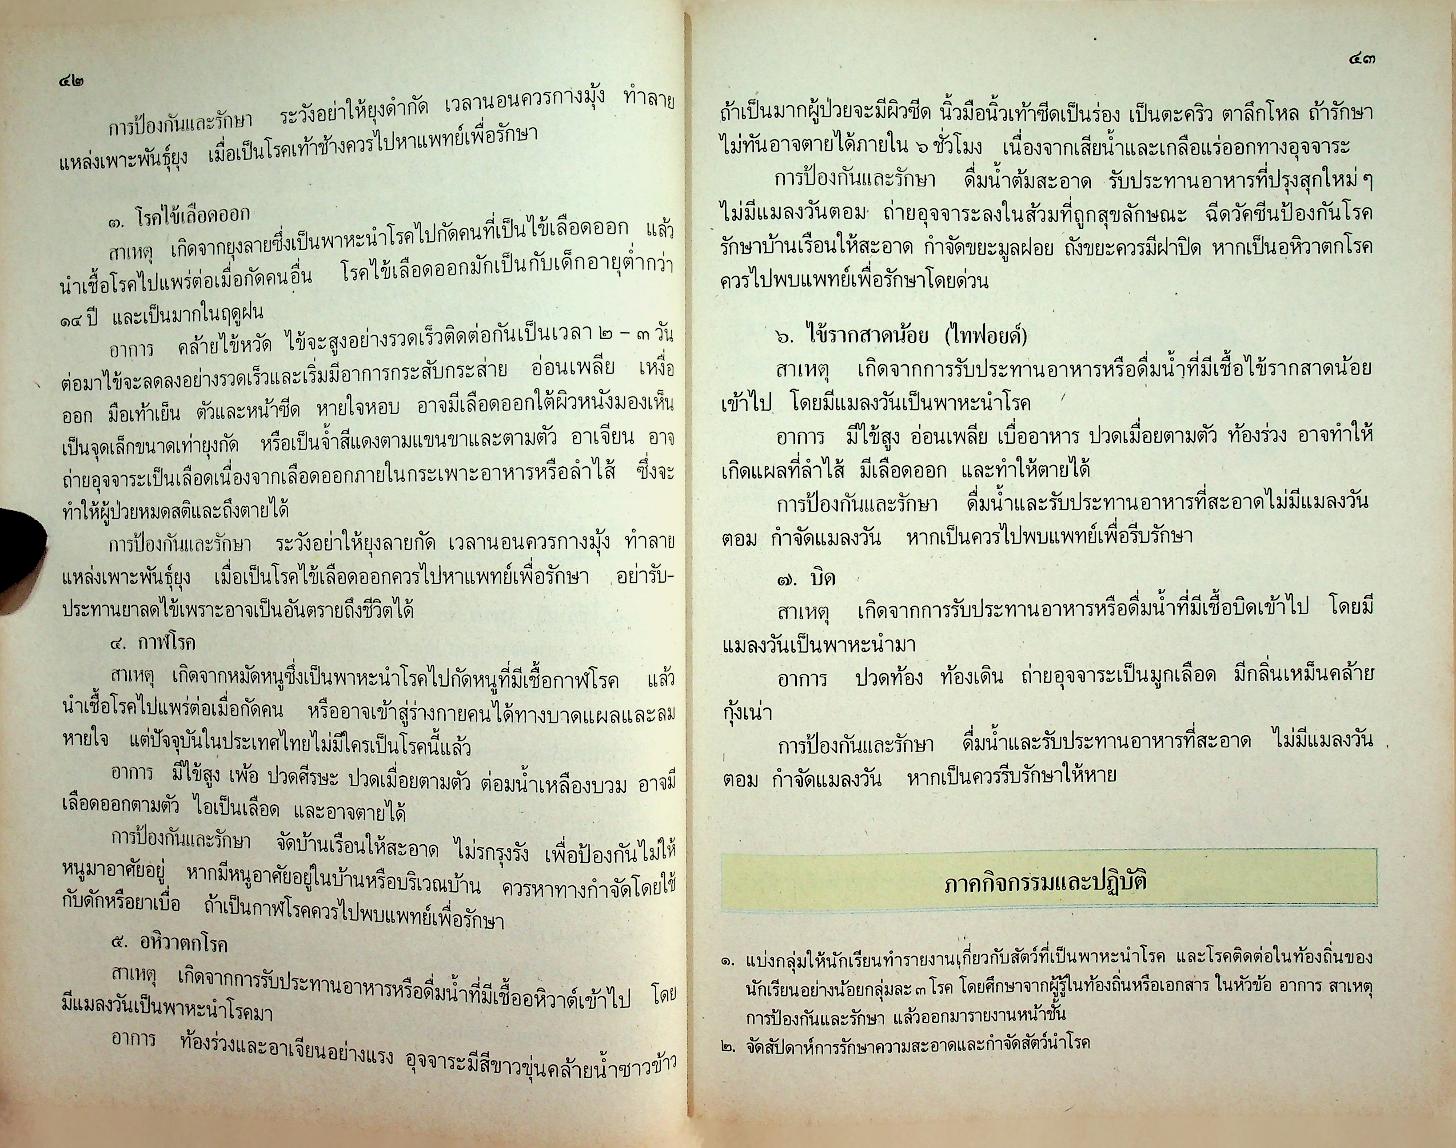 ๔๒
การป้องกันและรักษา ระวังอย่าให้ยุงดำกัด เวลานอนควรกางมุ้ง ทำลาย
แหล่งเพาะพันธุ์ยุง เมื่อเป็นโรคเท้าช้างควรไปหาแพทย์เพื่อรักษา
๓. โรคไข้เลือดออก
สาเหตุ เกิดจากยุงลายซึ่งเป็นพาหะนำโรคไปกัดคนที่เป็นไข้เลือดออก แล้ว
นำเชื้อโรคไปแพร่ต่อเมื่อกัดคนอื่น โรคไข้เลือดออกมักเป็นกับเด็กอายุต่ำกว่า
๑๔ ปี และเป็นมากในฤดูฝน
อาการ คล้ายไข้หวัด ไข้จะสูงอย่างรวดเร็วติดต่อกันเป็นเวลา ๒ - ๓ วัน
ต่อมาไข้จะลดลงอย่างรวดเร็วและเริ่มมีอาการกระสับกระส่าย อ่อนเพลีย เหงื่อ
ออก มือเท้าเย็น ตัวและหน้าซีด หายใจหอบ อาจมีเลือดออกใต้ผิวหนังมองเห็น
เป็นจุดเล็กขนาดเท่ายุงกัด หรือเป็นจ้ำสีแดงตามแขนขาและตามตัว อาเจียน อาจ
ถ่ายอุจจาระเป็นเลือดเนื่องจากเลือดออกภายในกระเพาะอาหารหรือลำไส้ ซึ่งจะ
ทำให้ผู้ป่วยหมดสติและถึงตายได้
การป้องกันและรักษา ระวังอย่าให้ยุงลายกัด เวลานอนควรกางมุ้ง ทำลาย
แหล่งเพาะพันธุ์ยุง เมื่อเป็นโรคไข้เลือดออกควรไปหาแพทย์เพื่อรักษา อย่ารับ-
ประทานยาลดไข้เพราะอาจเป็นอันตรายถึงชีวิตได้
๔. กาฬโรค
สาเหตุ เกิดจากหมัดหนูซึ่งเป็นพาหะนำโรคไปกัดหนูที่มีเชื้อกาฬโรค แล้ว
นำเชื้อโรคไปแพร่ต่อเมื่อกัดคน หรืออาจเข้าสู่ร่างกายคนได้ทางบาดแผลและลม
หายใจ แต่ปัจจุบันในประเทศไทยไม่มีใครเป็นโรคนี้แล้ว
อาการ มีไข้สูง เพ้อ ปวดศีรษะ ปวดเมื่อยตามตัว ต่อมน้ำเหลืองบวม อาจมี
เลือดออกตามตัว ไอเป็นเลือด และอาจตายได้
การป้องกันและรักษา จัดบ้านเรือนให้สะอาด ไม่รกรุงรัง เพื่อป้องกันไม่ให้
หนูมาอาศัยอยู่ หากมีหนูอาศัยอยู่ในบ้านหรือบริเวณบ้าน ควรหาทางกำจัดโดยใช้
กับดักหรือยาเบื่อ ถ้าเป็นกาฬโรคควรไปพบแพทย์เพื่อรักษา
๕. อหิวาตกโรค
สาเหตุ เกิดจากการรับประทานอาหารหรือดื่มน้ำที่มีเชื้ออหิวาต์เข้าไป โดย
มีแมลงวันเป็นพาหะนำโรคมา
อาการ ท้องร่วงและอาเจียนอย่างแรง อุจจาระมีสีขาวขุ่นคล้ายน้ำซาวข้าว
๔๓
ถ้าเป็นมากผู้ป่วยจะมีผิวซีด นิ้วมือนิ้วเท้าซีดเป็นร่อง เป็นตะคริว ตาลึกโหล ถ้ารักษา
ไม่ทันอาจตายได้ภายใน ๖ ชั่วโมง เนื่องจากเสียน้ำและเกลือแร่ออกทางอุจจาระ
การป้องกันและรักษา ดื่มน้ำต้มสะอาด รับประทานอาหารที่ปรุงสุกใหม่ ๆ
ไม่มีแมลงวันตอม ถ่ายอุจจาระลงในส้วมที่ถูกสุขลักษณะ ฉีดวัคซีนป้องกันโรค
รักษาบ้านเรือนให้สะอาด กำจัดขยะมูลฝอย ถังขยะควรมีฝาปิด หากเป็นอหิวาตกโรค
ควรไปพบแพทย์เพื่อรักษาโดยด่วน
๖. ไข้รากสาดน้อย (ไทฟอยด์)
สาเหตุ เกิดจากการรับประทานอาหารหรือดื่มน้ำที่มีเชื้อไข้รากสาดน้อย
เข้าไป โดยมีแมลงวันเป็นพาหะนำโรค
อาการ มีไข้สูง อ่อนเพลีย เบื่ออาหาร ปวดเมื่อยตามตัว ท้องร่วง อาจทำให้
เกิดแผลที่ลำไส้ มีเลือดออก และทำให้ตายได้
การป้องกันและรักษา ดื่มน้ำและรับประทานอาหารที่สะอาดไม่มีแมลงวัน
ตอม กำจัดแมลงวัน หากเป็นควรไปพบแพทย์เพื่อรีบรักษา
๗. บิด
สาเหตุ เกิดจากการรับประทานอาหารหรือดื่มน้ำที่มีเชื้อบิดเข้าไป โดยมี
แมลงวันเป็นพาหะนำมา
อาการ ปวดท้อง ท้องเดิน ถ่ายอุจจาระเป็นมูกเลือด มีกลิ่นเหม็นคล้าย
กุ้งเน่า
การป้องกันและรักษา ดื่มน้ำและรับประทานอาหารที่สะอาด ไม่มีแมลงวัน
ตอม กำจัดแมลงวัน หากเป็นควรรีบรักษาให้หาย
ภาคกิจกรรมและปฏิบัติ
๑. แบ่งกลุ่มให้นักเรียนทำรายงานเกี่ยวกับสัตว์ที่เป็นพาหะนำโรค และโรคติดต่อในท้องถิ่นของ
นักเรียนอย่างน้อยกลุ่มละ ๓ โรค โดยศึกษาจากผู้รู้ในท้องถิ่นหรือเอกสาร ในหัวข้อ อาการ สาเหตุ
การป้องกันและรักษา แล้วออกมารายงานหน้าชั้น
๒. จัดสัปดาห์การรักษาความสะอาดและกำจัดสัตว์นำโรค